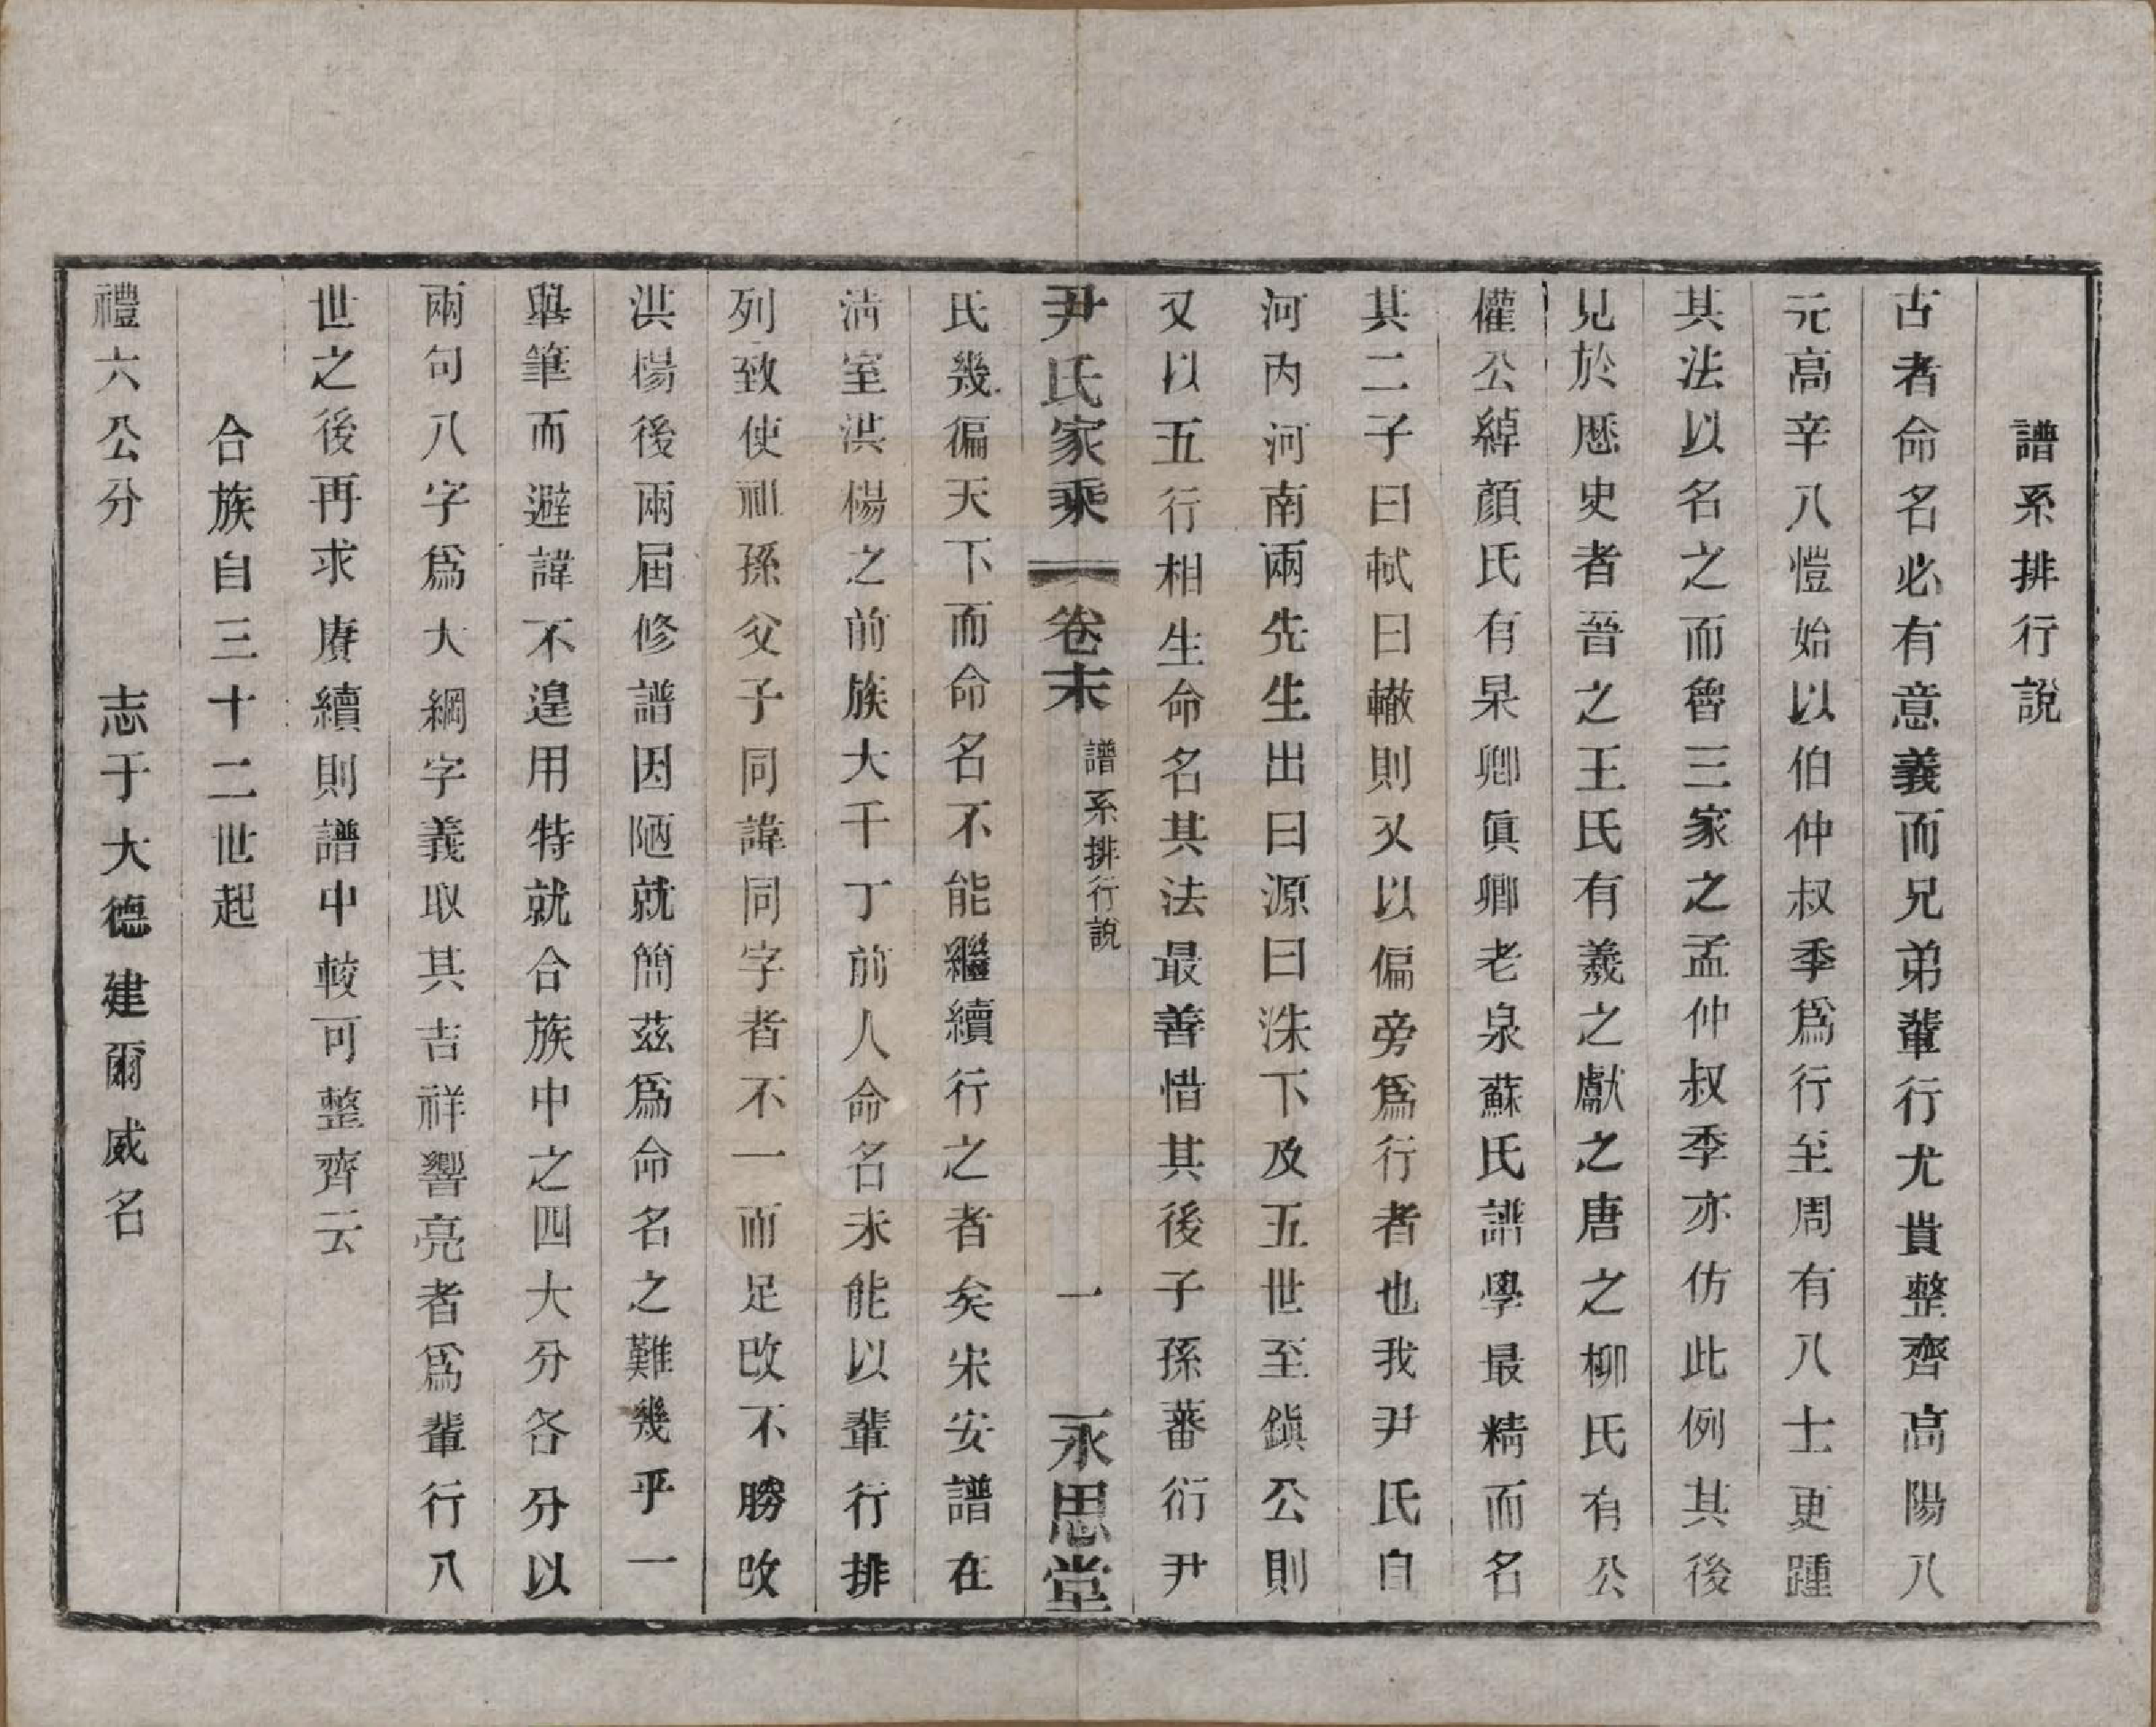 譜系排行說
古者命名必有意義而兄弟輩行尤貴整齊高陽八
元高辛八愷始以伯仲叔季爲行至周有八士更踵
其法以名之而魯三家之孟仲叔季亦仿此例其後
見於歷史者晉之王氏有羲之獻之唐之柳氏有公
權公綽顏氏有杲卿眞卿老泉蘇氏譜學最精而名
其二子曰軾曰轍則又以偏旁爲行者也我尹氏自
河內河南兩先生出曰源曰洙下及五世至鎭公則
又以五行相生命名其法最善惜其後子孫蕃衍尹
尹氏家乘 卷末 譜系排行說 一 永思堂
氏幾徧天下而命名不能繼續行之者矣宋安譜在
淸室洪楊之前族大干丁前人命名未能以輩行排
列致使祖孫父子同諱同字者不一而足改不勝改
洪楊後兩屆修譜因陋就簡茲爲命名之難幾乎一
舉筆而避諱不遑用特就合族中之四大分各分以
兩句八字爲大綱字義取其吉祥響亮者爲輩行八
世之後再求賡續則譜中較可整齊云
合族自三十二世起
禮六公分 志于大德建爾威名